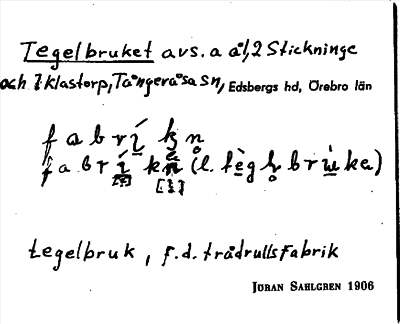 Tegelbruket avs. a å 1,2 Stickninge
och 7 Klastorp, Tångeråsa sn, Edsbergs hd, Örebro län
fabrí kn̥
fabrí kn̥ (l. tègl̥ brùka)
tegelbruk, f.d. trådrullsfabrik
JÖRAN SAHLGREN 1906